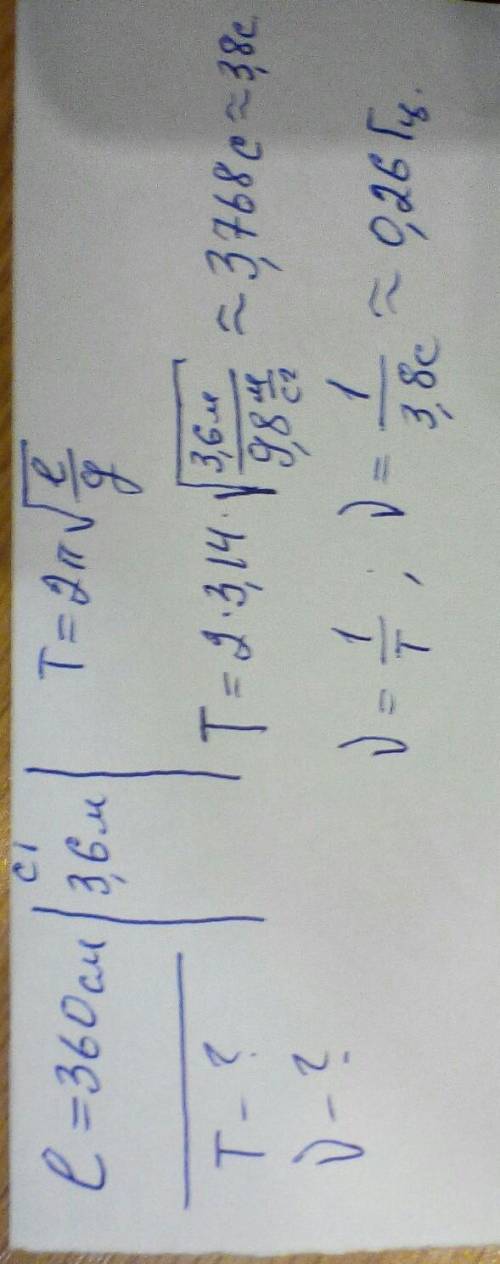 l = 360 см | СИ 3,6 м | T = 2π√(l/g)
T - ?
ν - ?
T = 2·3,14·√(3,6 м / 9,8 м/с²) ≈ 3,768 с ≈ 3,8 с.
ν = 1/T ; ν = 1/3,8 с ≈ 0,26 Гц.